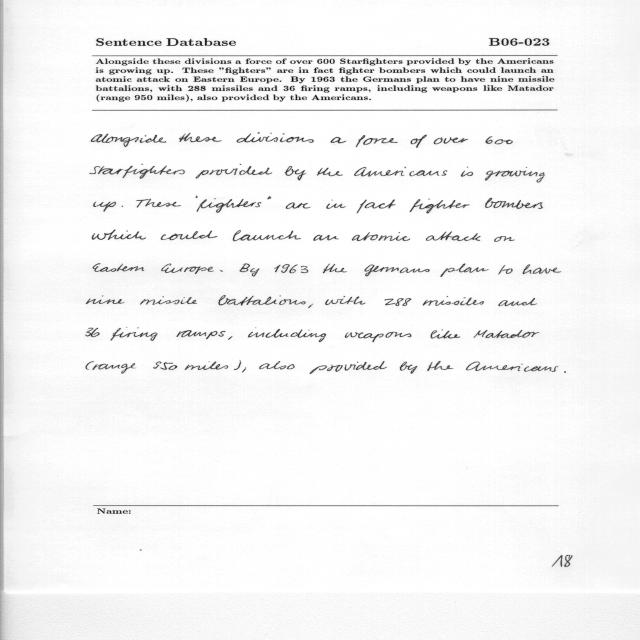 Sentence Database B06-023
Alongside these divisions a force of over 600 Starfighters provided by the Americans
is growing up. These "fighters" are in fact fighter bombers which could launch an
atomic attack on Eastern Europe. By 1963 the Germans plan to have nine missile
battalions, with 288 missiles and 36 firing ramps, including weapons like Matador
(range 950 miles), also provided by the Americans.
Alongside these divisions a force of over 600
Starfighters provided by the Americans is growing
up. These "fighters" are in fact fighter bombers
which could launch an atomic attack on
Eastern Europe. By 1963 the Germans plan to have
nine missile battalions, with 288 missiles and
36 firing ramps, including weapons like Matador
(range 550 miles), also provided by the Americans.
Name:
18